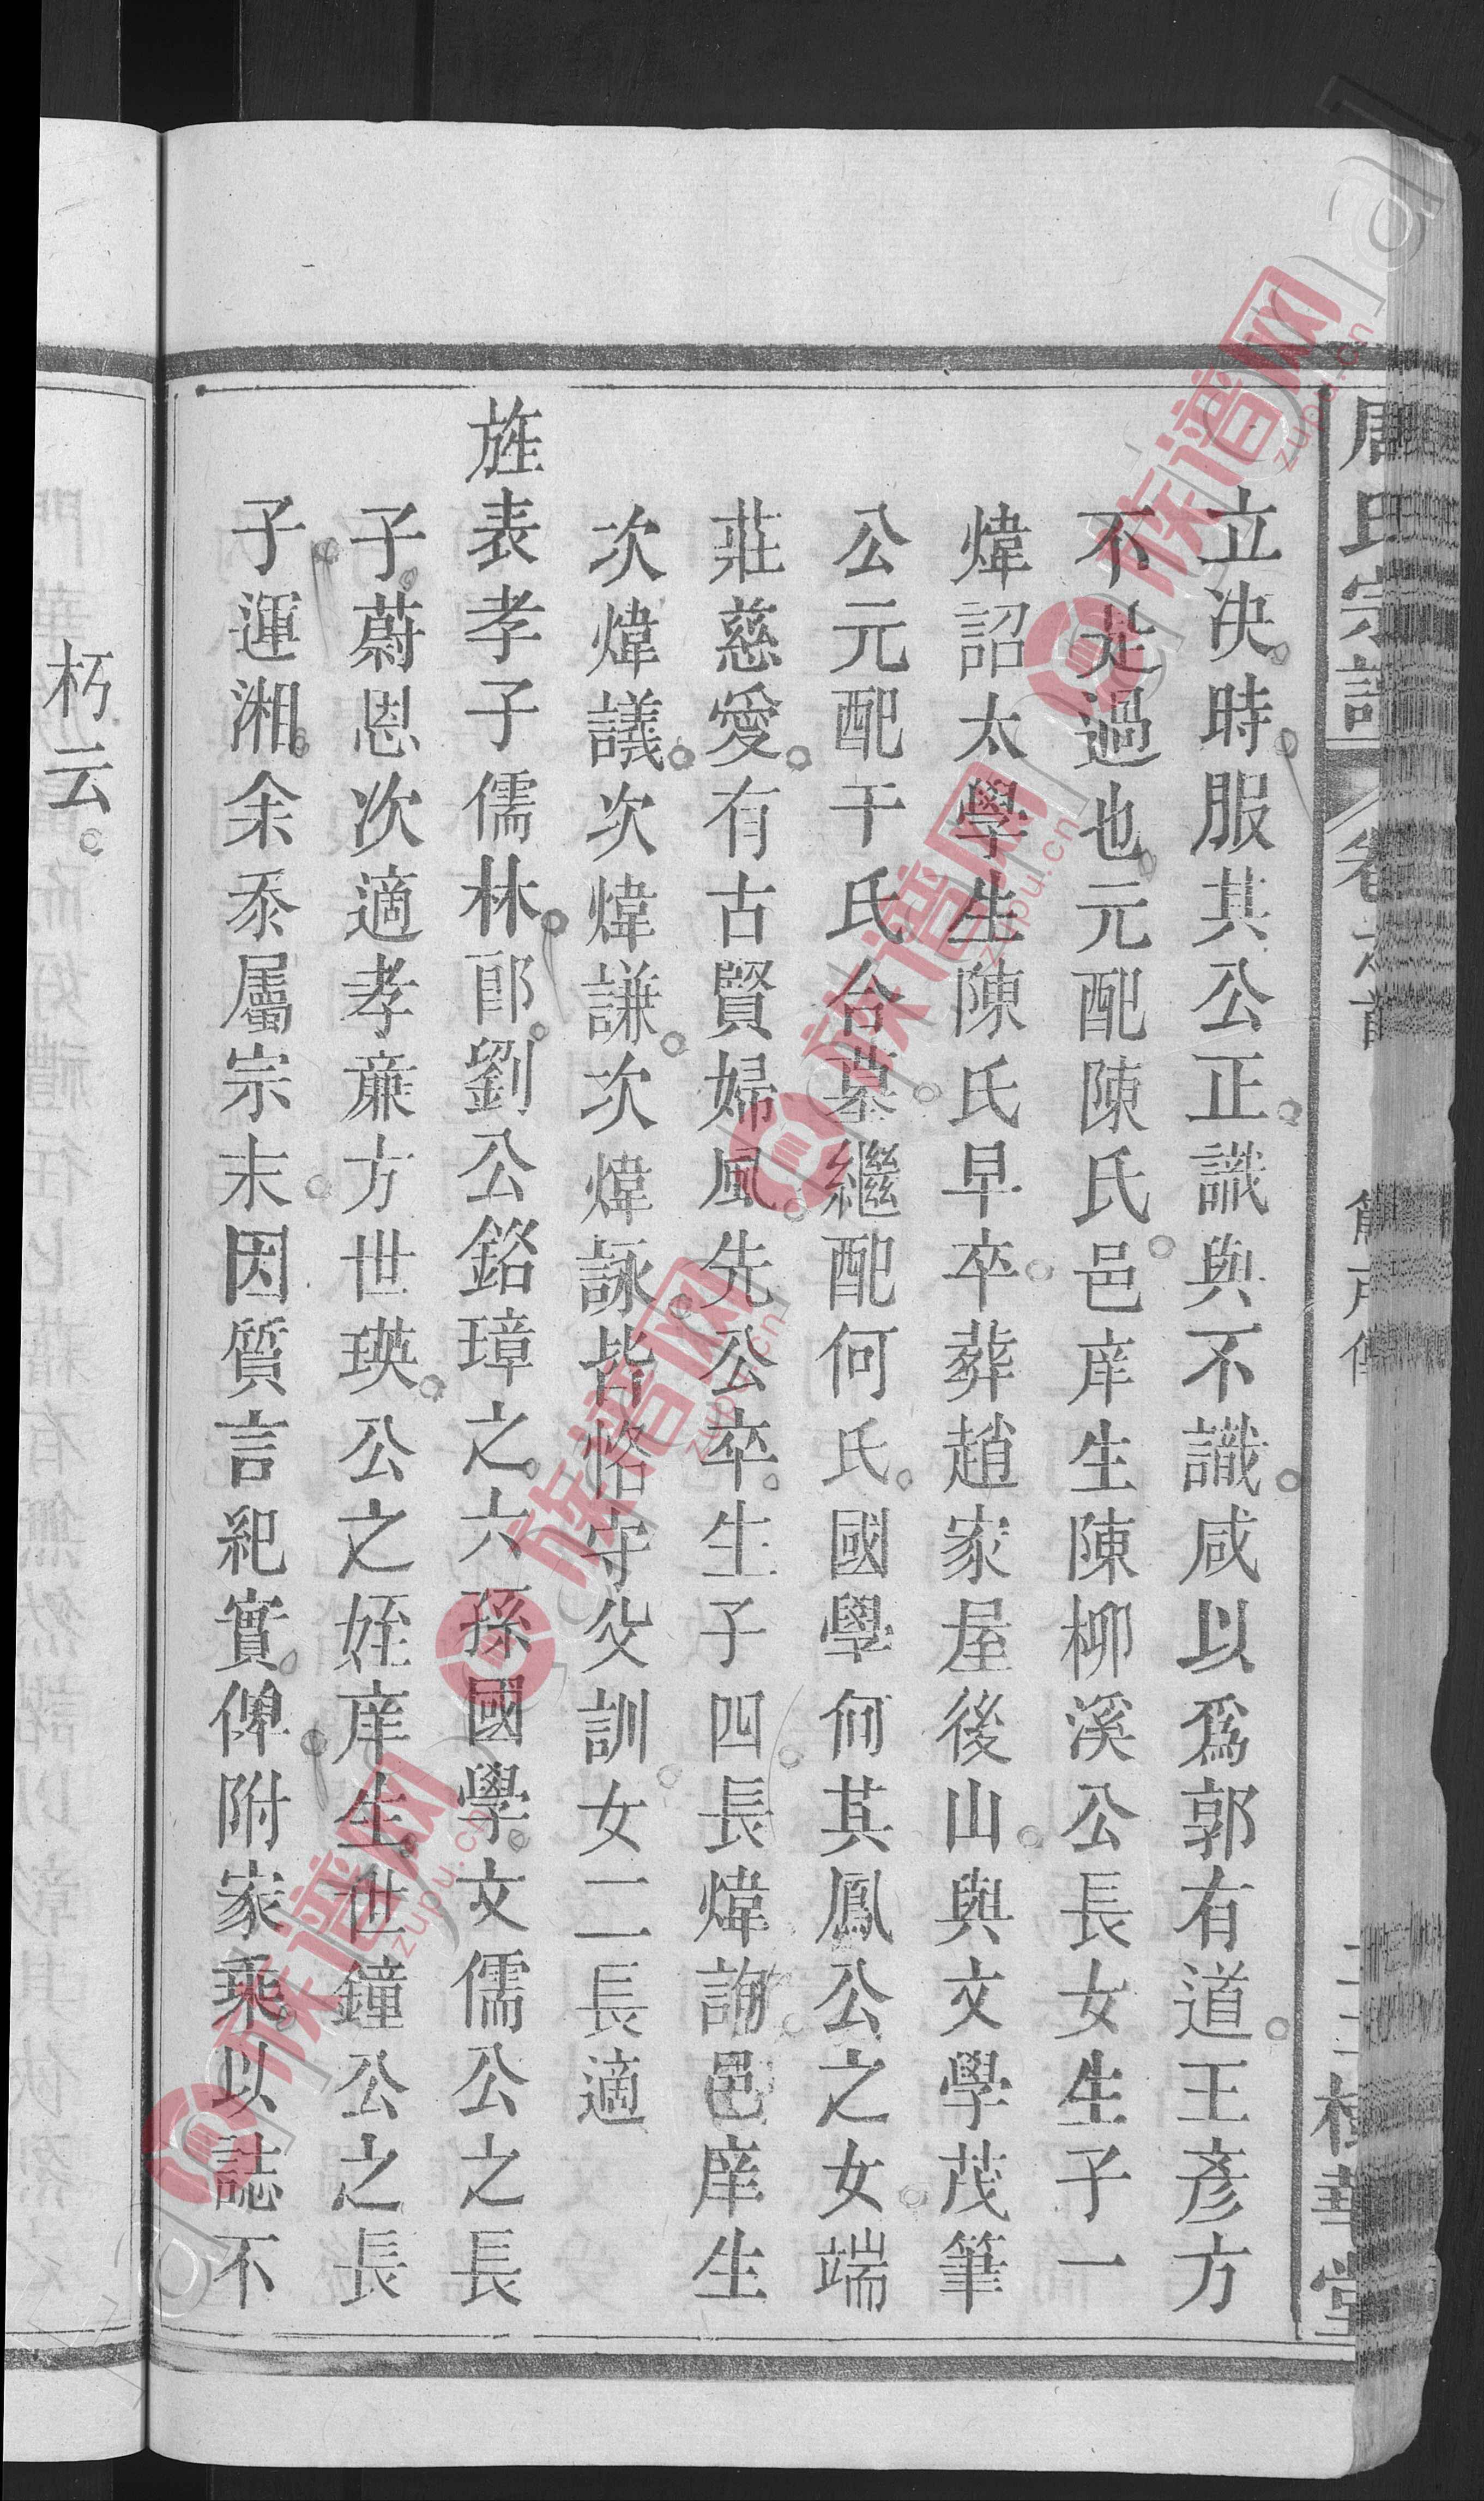 周氏宗譜 卷之首
立决時服其公正識與不識咸以爲郭有道王彥方
不是過也元配陳氏邑庠生陳柳溪公長女生子一
煒詔太學生陳氏早卒葬趙家屋後山與文學茂筆
公元配干氏合墓繼配何氏國學何其鳳公之女端
莊慈愛有古賢婦風先公卒生子四長煒詢邑庠生
次煒議次煒謙次煒詠皆恪守父訓女二長適
旌表孝子儒林郎劉公銘璋之六孫國學文儒公之長
子蔚恩次適孝廉方世瑛公之姪庠生世鐘公之長
子運湘余忝屬宗末因質言紀實俾附家乘以誌不
朽云
族谱网 zupu.cn
族谱网 zupu.cn
族谱网 zupu.cn
族谱网 zupu.cn